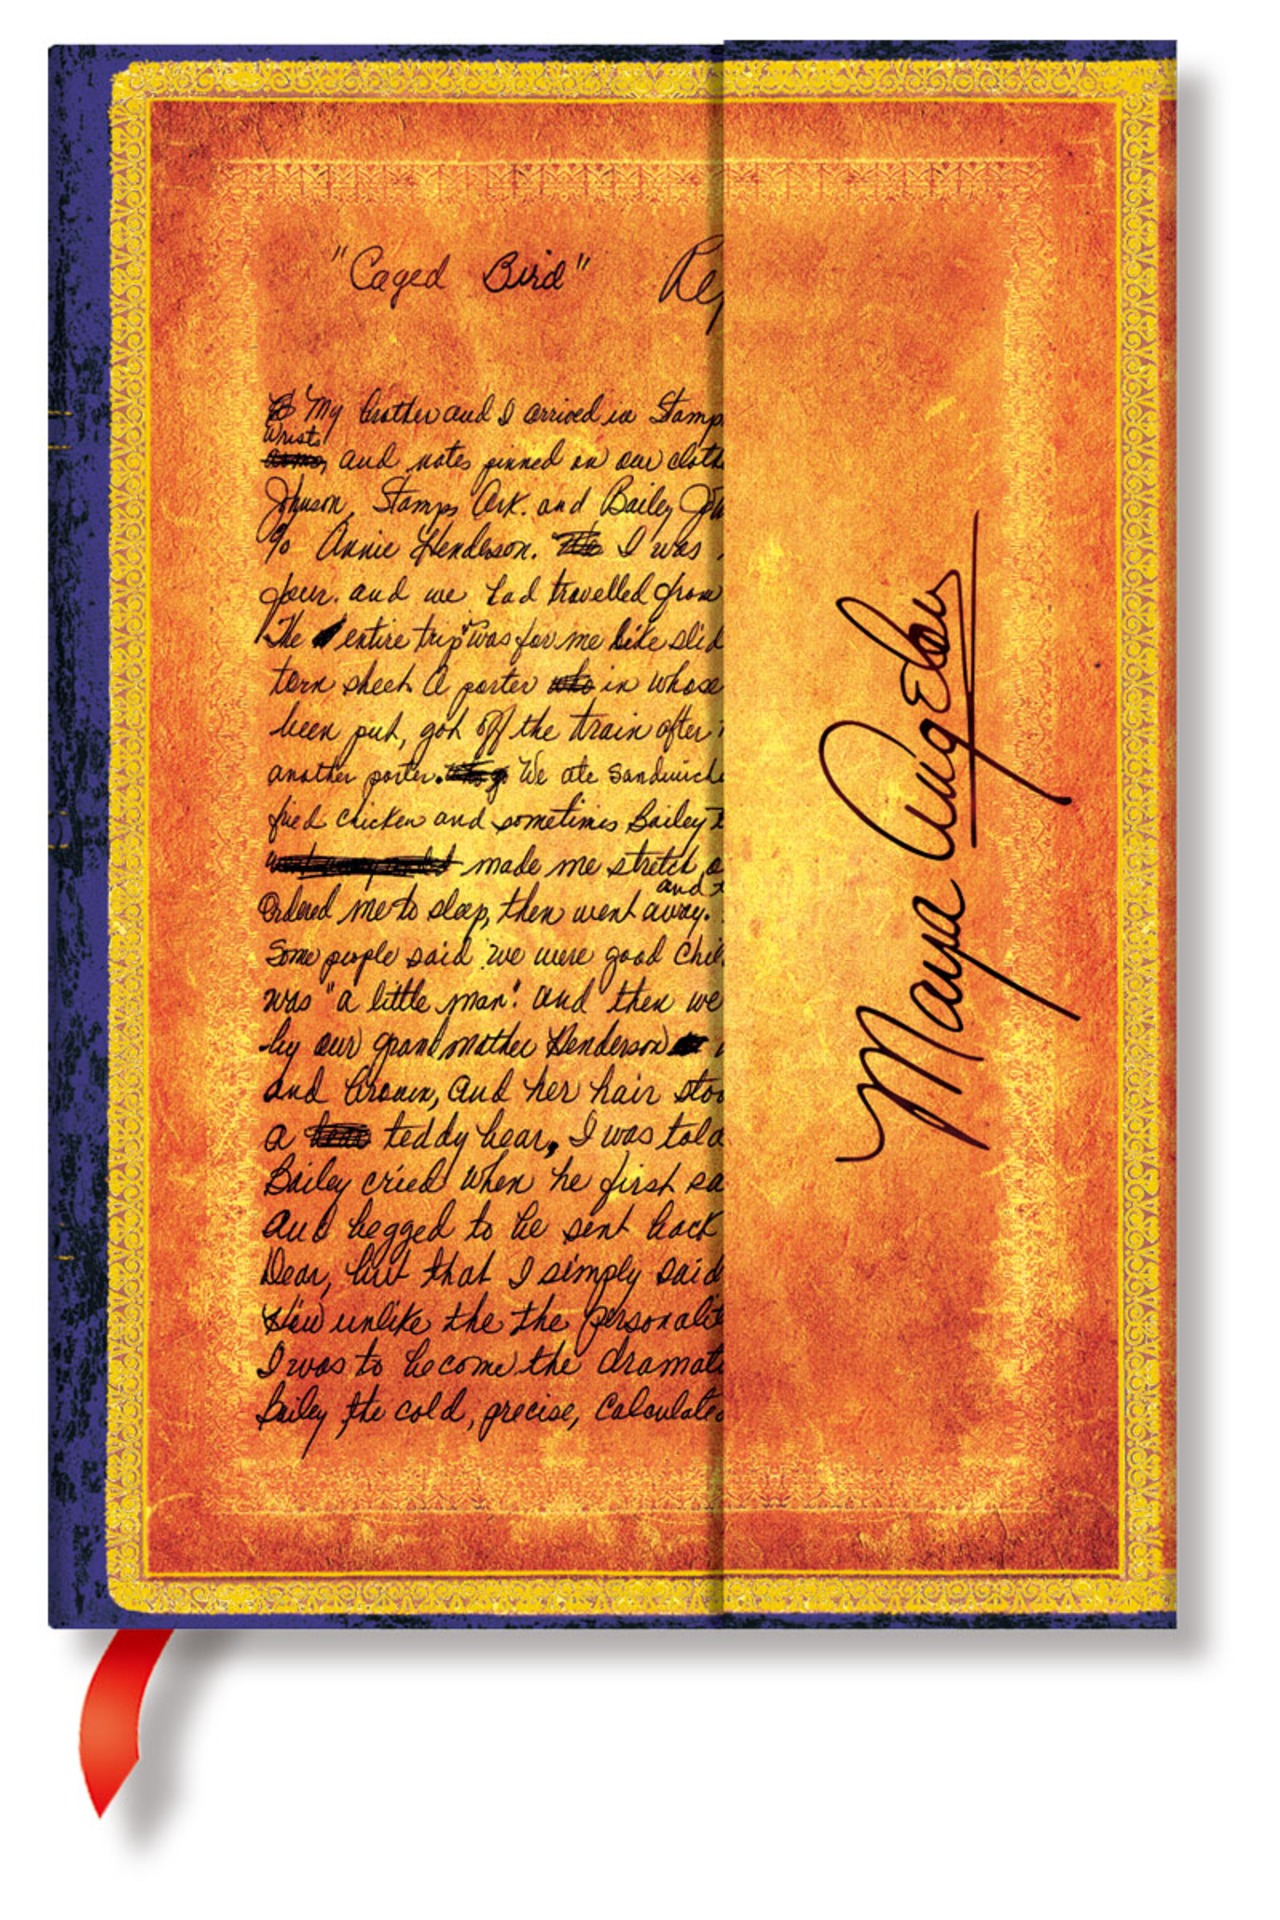 "Caged Bird" Rep
My brother and I arrived in Stamp
wrists
and notes pinned on our cloth
Johnson, Stamps Ark. and Bailey Joh
c/o Annie Henderson. I was
four. and we had travelled from
The entire trip was for me like slid
torn sheet. A porter who in whose
been put, got off the train after
another porter. We ate sandwiche
fried chicken and sometimes Bailey
made me stretch o
and
Ordered me to sleep, then went away.
Some people said we were good chil
was "a little man". and then we
by our grandmother Henderson
and brown, and her hair stoo
a teddy bear, I was told
Bailey cried when he first sa
and begged to be sent back
Dear, but that I simply said
How unlike the the personalit
I was to become the dramat
Bailey the cold, precise, calculate
Maya Angelou